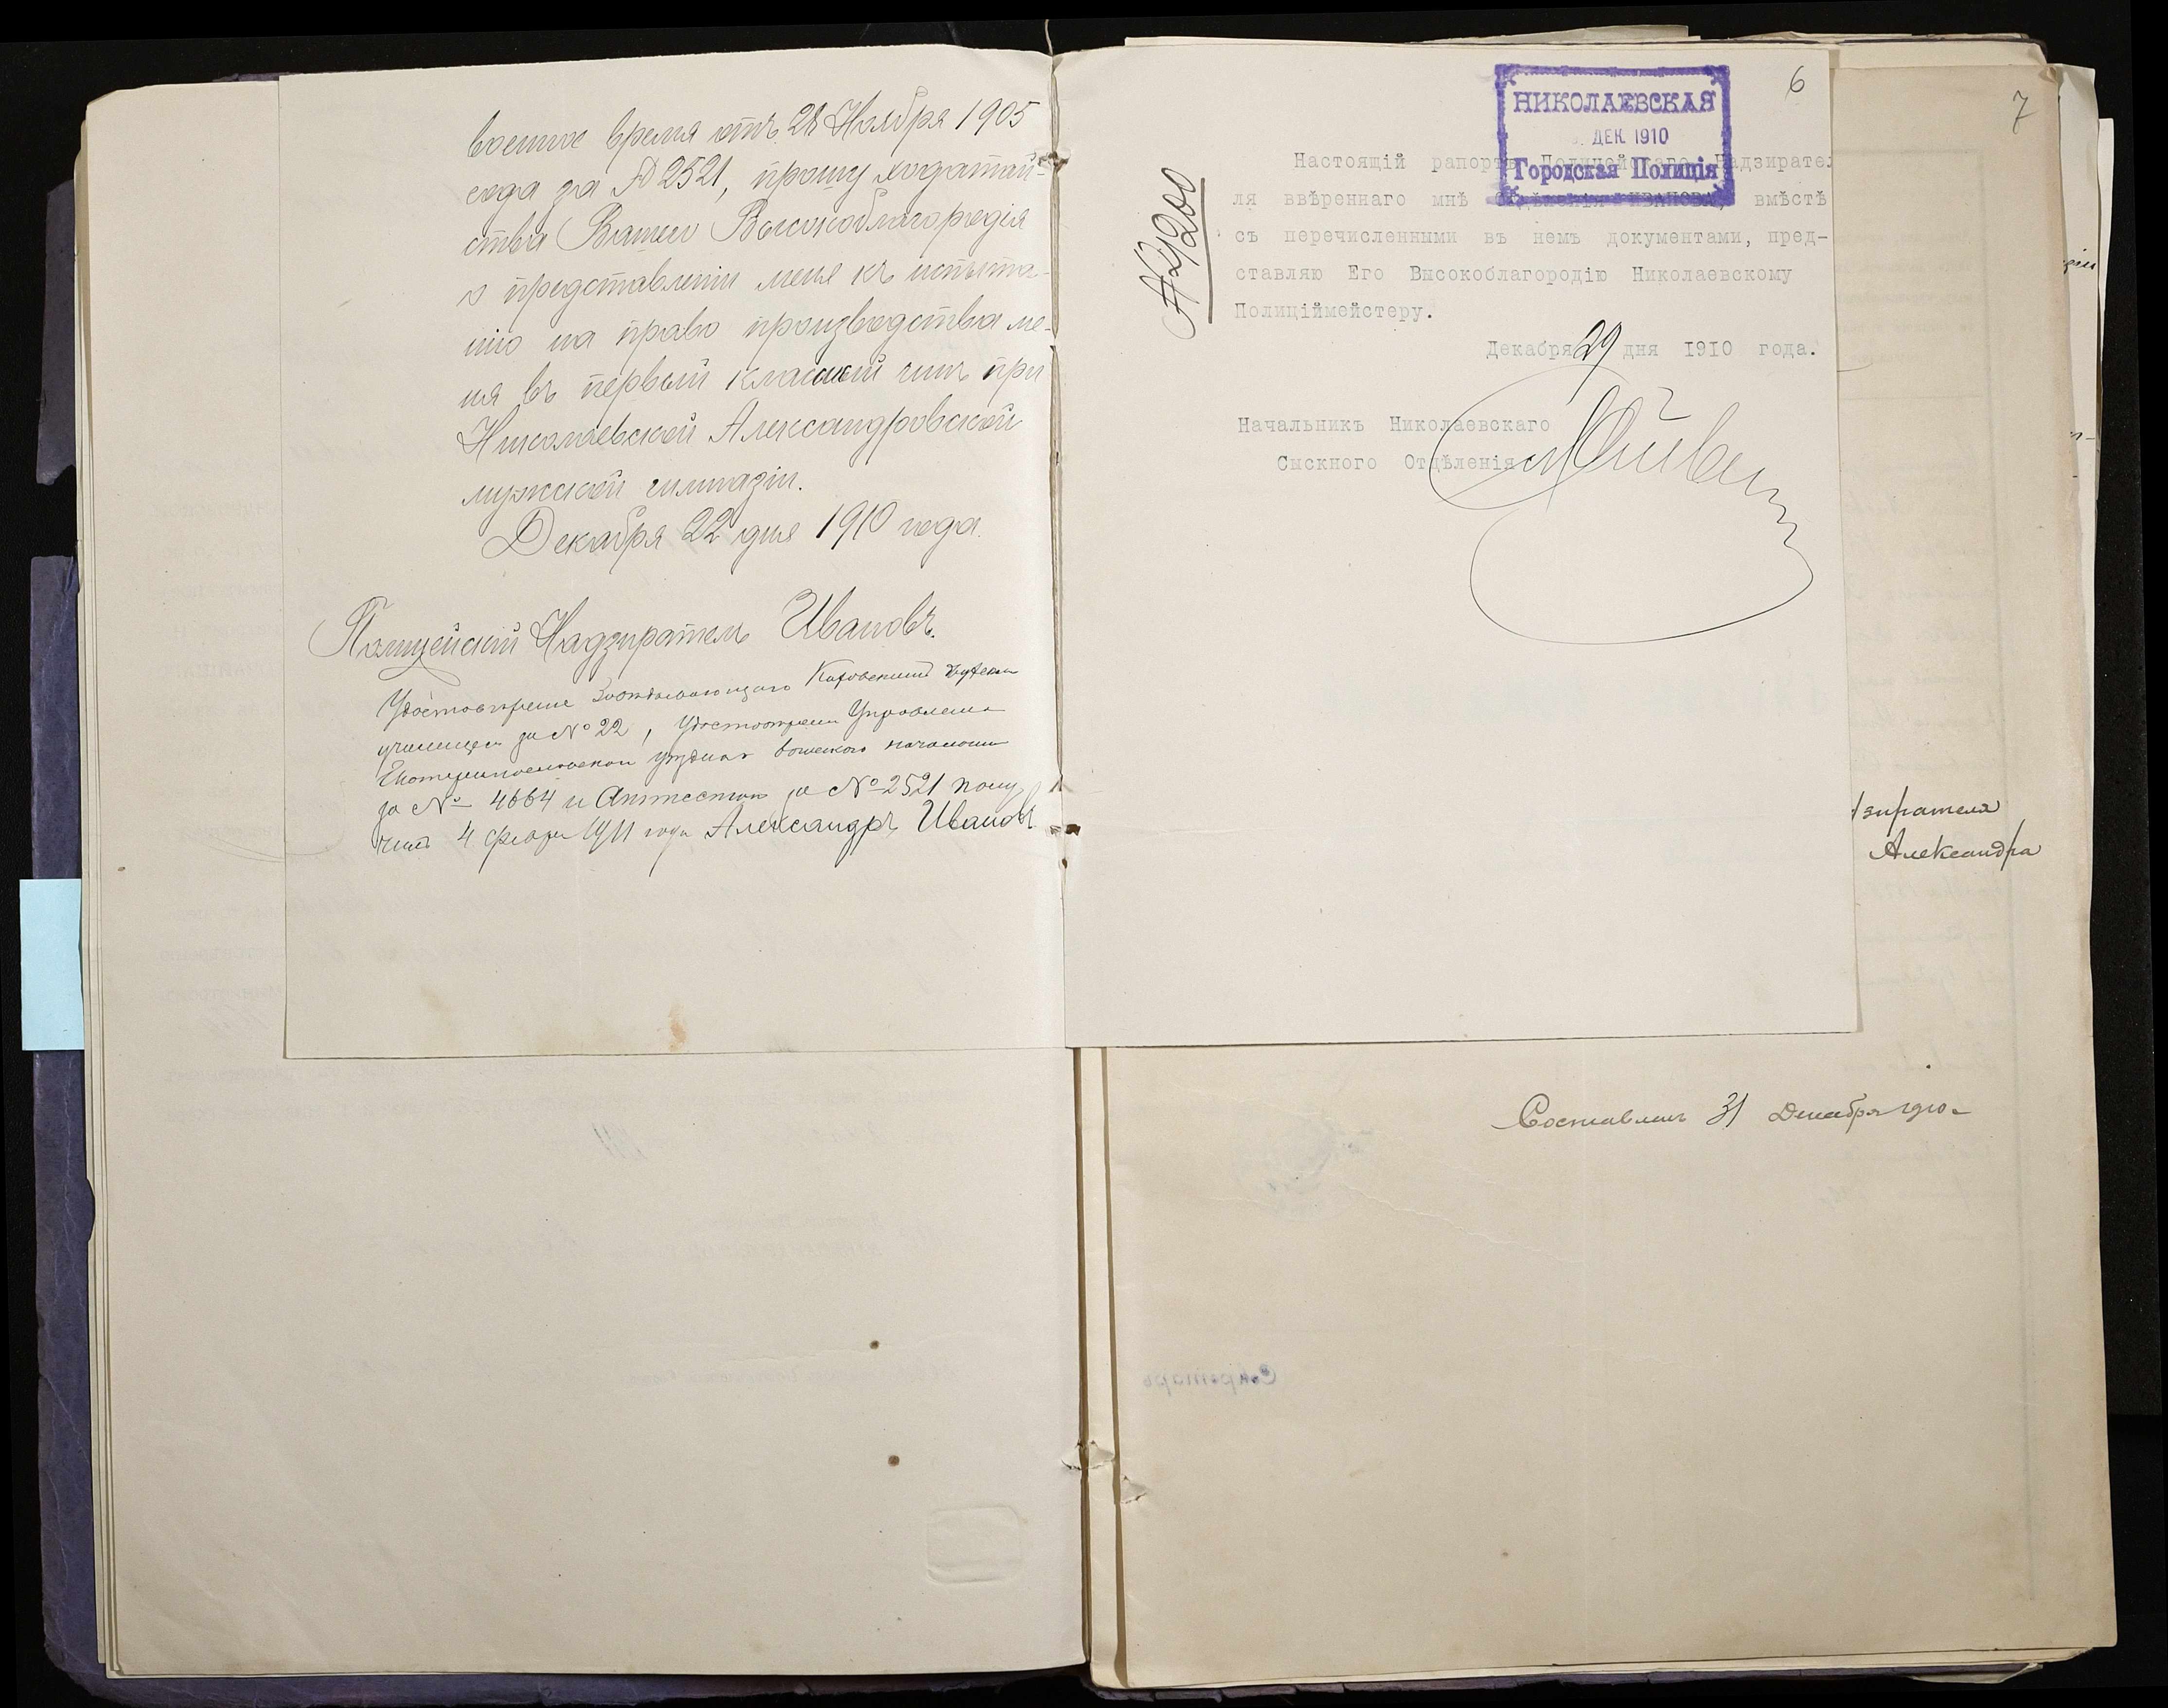 военное время отъ 28 Ноября 1905
года за № 2521, прошу ходатай-
ства Вашего Высокоблагородія
о представленіи меня къ испыта-
нію на право производства ме-
ня въ первый классный чинъ при
Николаевской Александровской
мужской гимназіи.
Декабря 22 дня 1910 года.
Полицейскій Надзиратель Ивановъ.
Удостовѣреніе Завѣдывающаго
училищемъ за № 22, Удостовѣреніе Управленія
Екатеринославскаго уѣзднаго воинскаго начальника
за № 4664 и Аттестатъ за № 2521 полу
чилъ 4 1911 года Александръ Ивановъ
6
НИКОЛАЕВСКАЯ
ДЕК. 1910
Городская Полиція
№ 4200
Настоящій рапортъ Полицейскаго Надзирател
ля ввѣреннаго мнѣ Отдѣленія ИВАНОВА, вмѣстѣ
съ перечисленными въ немъ документами, пред-
ставляю Его Высокоблагородію Николаевскому
Полиціймейстеру.
Декабря 29 дня 1910 года.
Начальникъ Николаевскаго
Сыскного Отдѣленія
7
зирателя
Александра
Составленъ 31 Декабря 1910